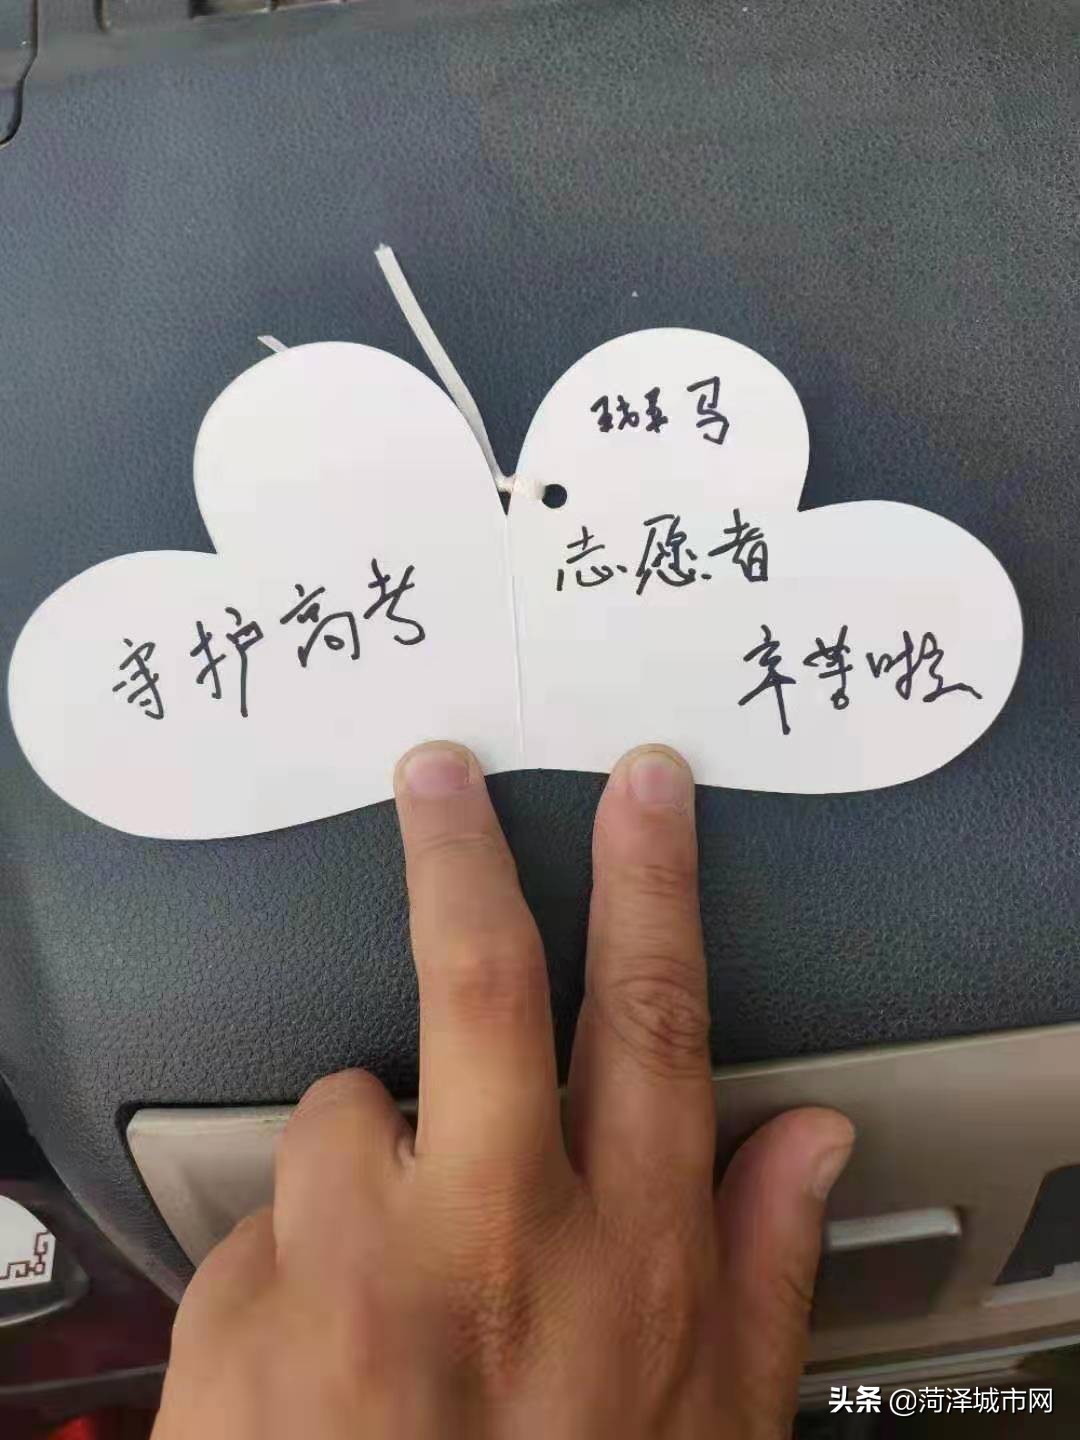 守护高考
斑马
志愿者
辛苦啦
头条 @菏泽城市网